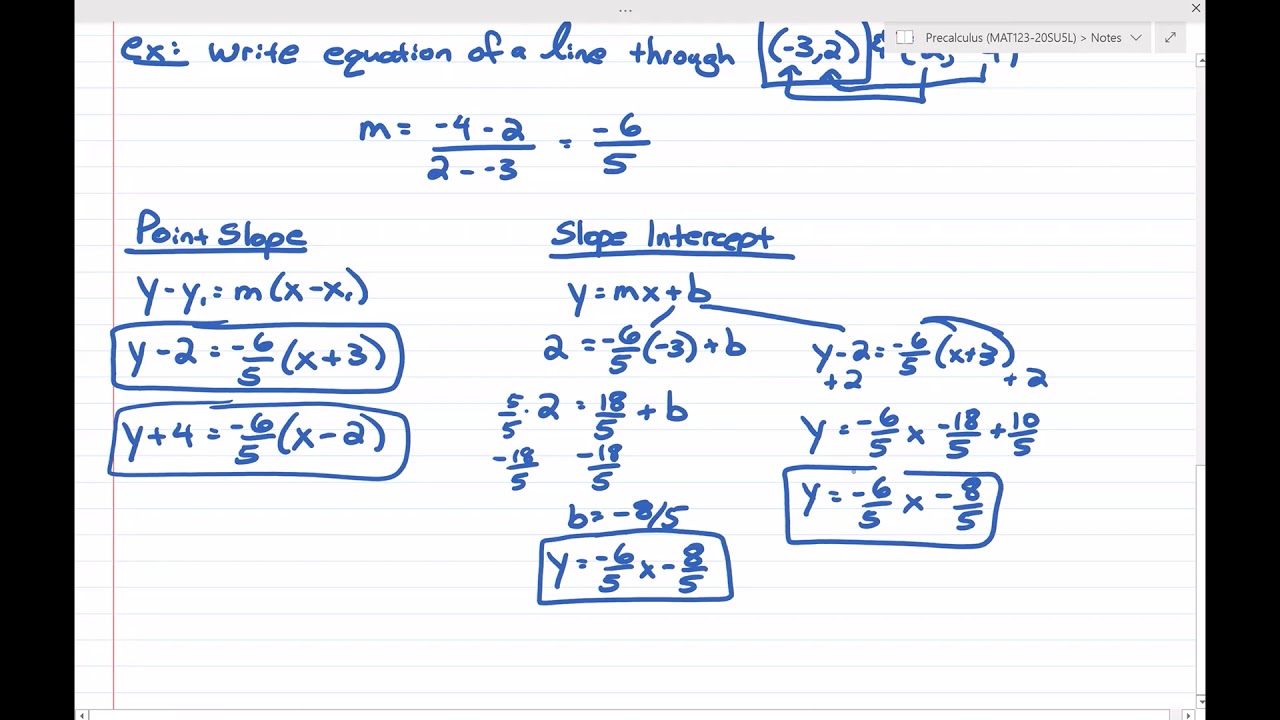 Precalculus (MAT123-20SU5L) > Notes
ex: Write equation of a line through (-3,2)
m = -4 - 2 / 2 - -3 = -6/5
Point Slope
y - y₁ = m(x - x₁)
y - 2 = -6/5 (x + 3)
y + 4 = -6/5 (x - 2)
Slope Intercept
y = mx + b
2 = -6/5 (-3) + b
5/5 · 2 = 18/5 + b
-18/5 -18/5
b = -8/5
y = -6/5 x - 8/5
y - 2 = -6/5 (x + 3)
+2 +2
y = -6/5 x -18/5 + 10/5
y = -6/5 x - 8/5